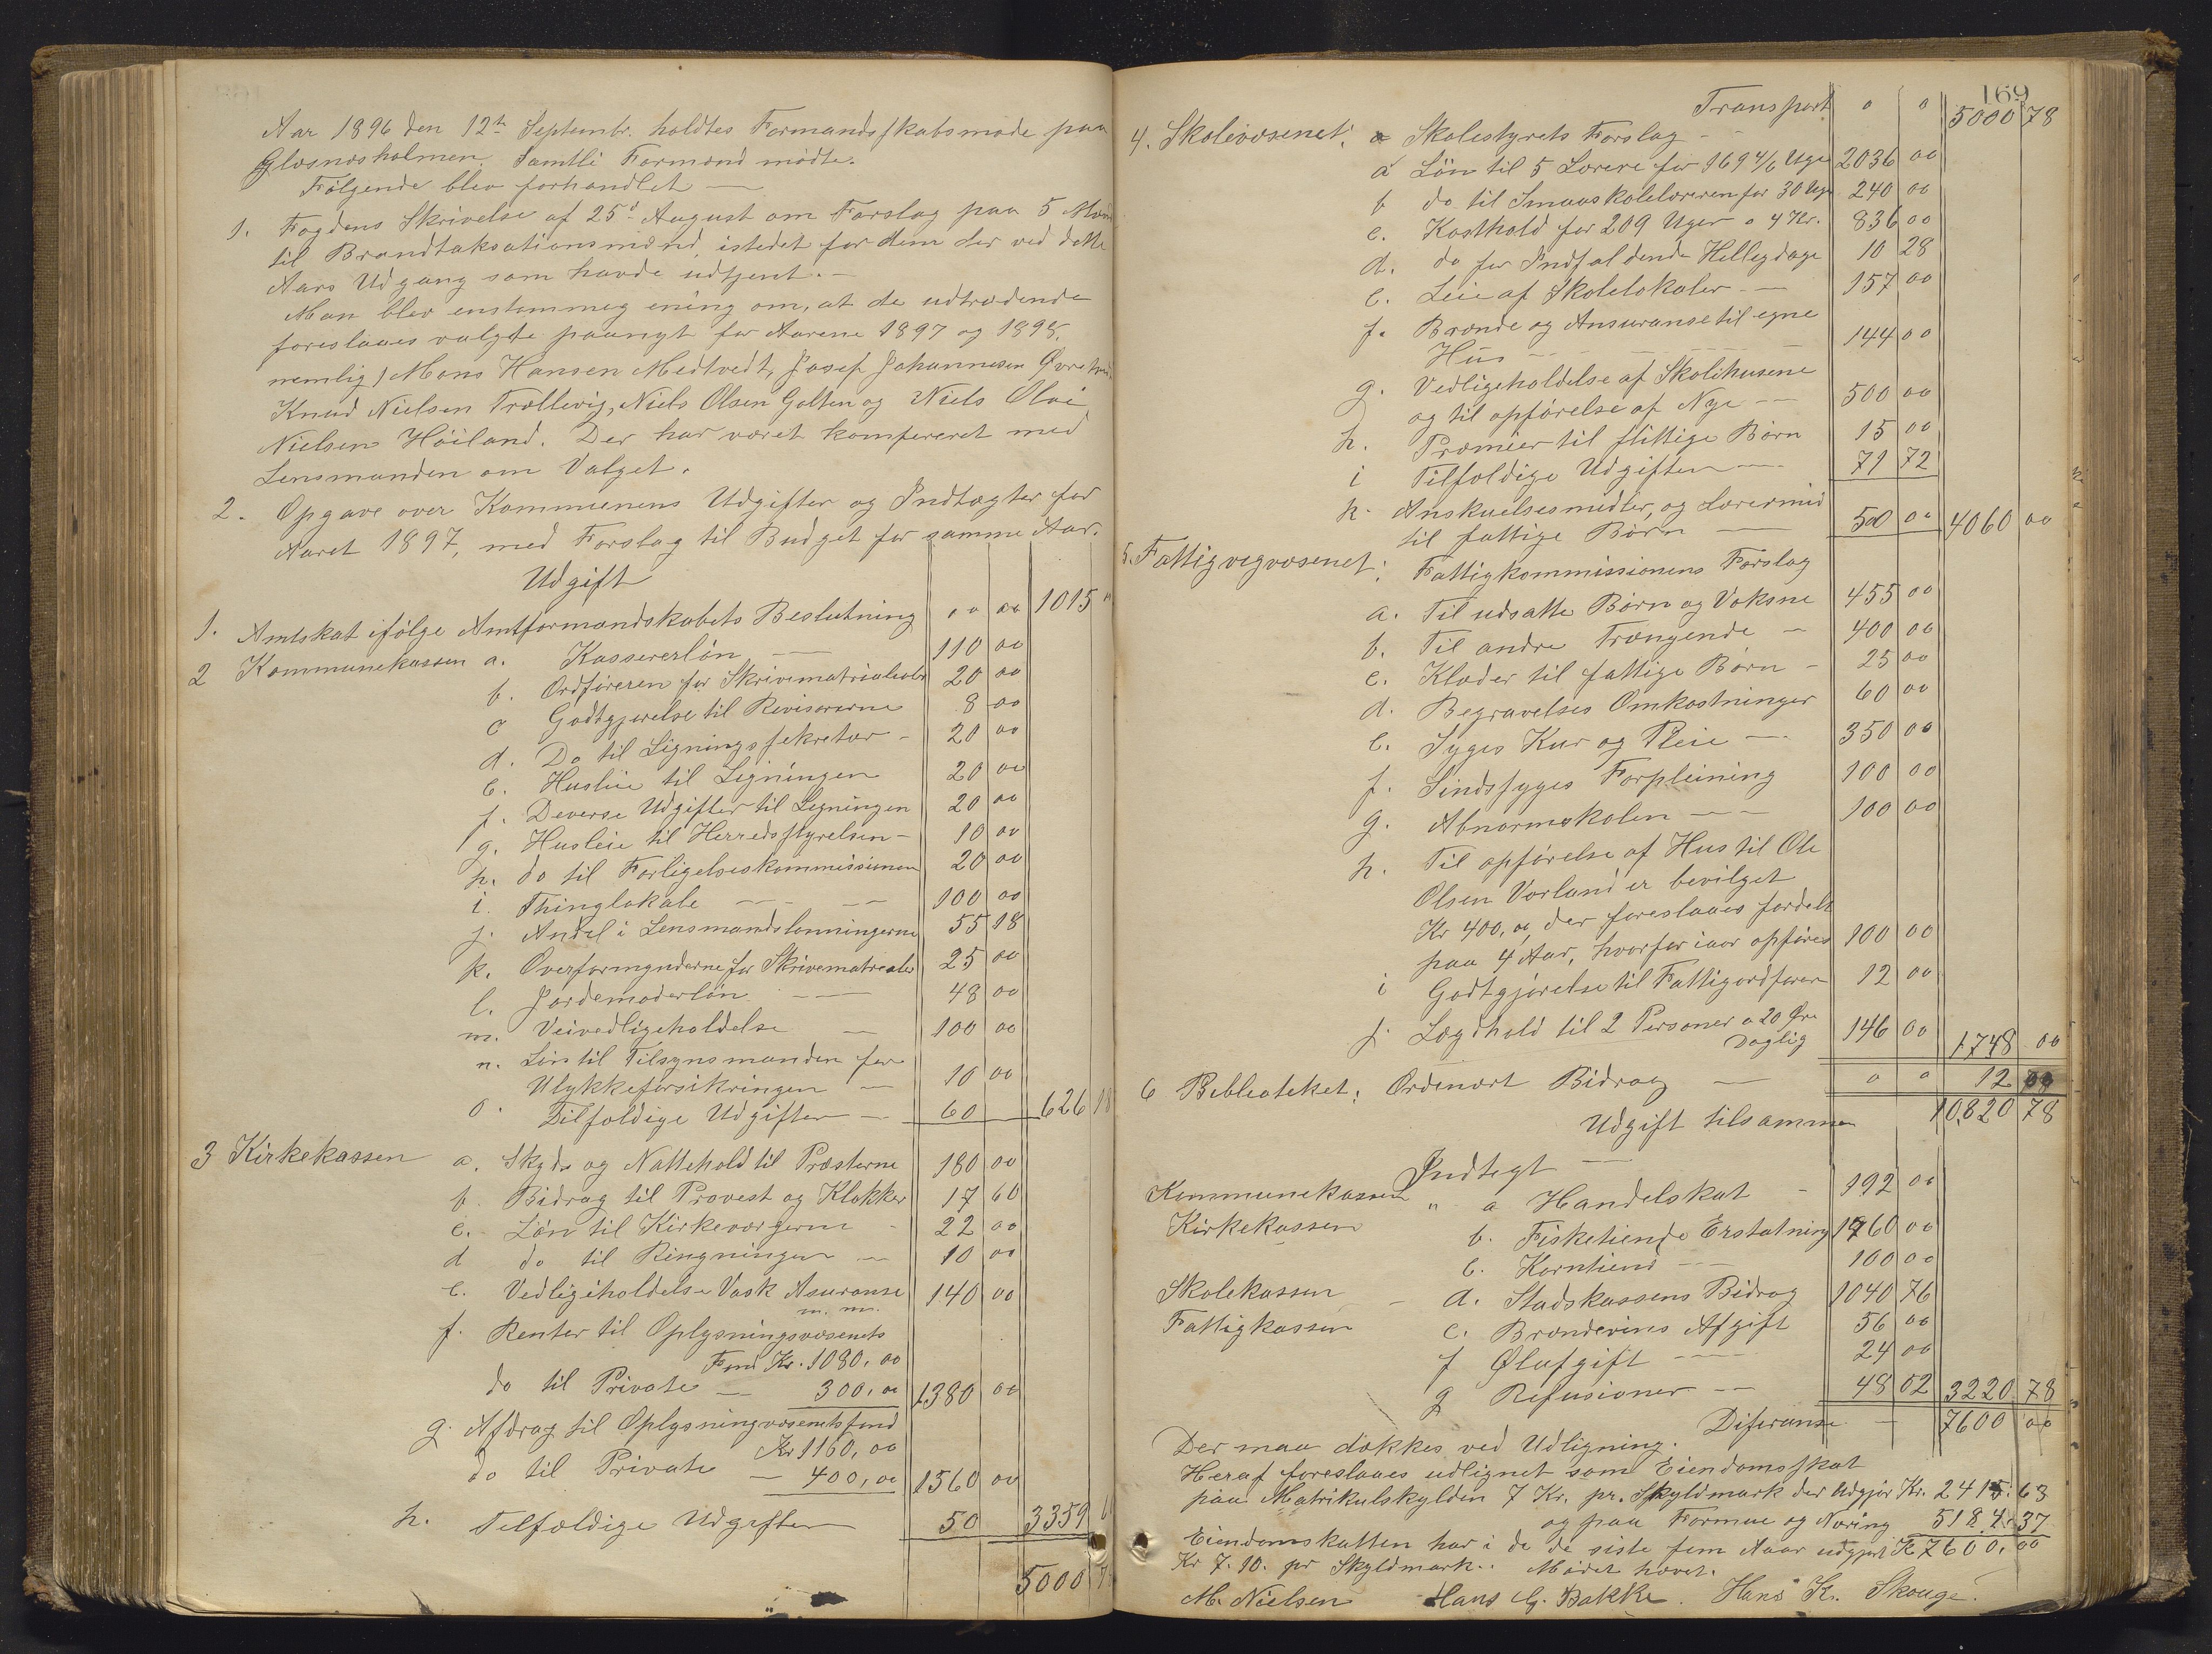 Aar 1896 den 12te Septembr. holdtes Formandsskabsmøde paa
Glæsnæsholmen. Samtli Formænd mødte.
Følgende blev forhandlet —
1. Fogdens Skrivelse af 25de August om Forslag paa 5 Mænd
til Brandtaksationsmænd, istedet for dem der ved dette
Aars Udgang som havde udtjent. —
Man blev enstemmeg ening om, at de udtrædende
foreslaaes valgte paanyt for Aarene 1897 og 1898.
nemlig, Mons Hansen Medtvedt, Josef Johannesen
Knud Nielsen Trollevig, Niels Olsen Golten og Niels Olai
Nielsen Höiland. Der har været komfereret med
Lensmanden om Valget.
2. Opgave over Kommunens Udgifter og Indtægter for
Aaret 1897, med Forslag til Budget for samme Aar.
Udgift
1. Amtskat ifølge Amtformandskabets Beslutning " " 00 1015 "
2 Kommunekassen a. Kassererlön — 110 00
b. Ordføreren for Skrivematrialer 20 00
c Godtgjørelse til Revisorerne 8 00
d. Do til Ligningssekretær - 20 00
e. Husleie til Ligningen 20 00
f. Deverse Udgifter til Legningen 20 00
g. Husleie til Herredsstyrelsen - 10 00
h. do til Forligelseskommissionen 20 00
i. Thinglokale — — 100 00
j. Andel i Lensmandslønningerne 55 18
k. Overformynderne for Skrivematrealer 25 00
l. Jordemoderlön — 48 00
m. Veivedligeholdelse — 100 00
n. Lön til Tilsynsmanden for
Ulykkeforsikringen — 10 00
o. Tilfældige Udgifter — 60 626 18
3 Kirkekassen a. Skyds og Nattehold til Præsterne 180 00
b. Bidrag til Provest og Klokker 17 60
c. Lön til Kirkeværgerne - 22 00
d do til Ringningen — 10 00
e. Vedligeholdelse Vask Asuranse
m. m. 140 00
f. Renter til Oplysningsvæsenets
Fond Kr. 1080,00
do til Private — 300,00 1380 00
g. Afdrag til Oplysningvæsenetsfond
Kr 1160,00
do til Private — 400,00 1560 00
h. Telfældige Udgifter 50 3359
5000
169
Transport " " 5000 78
4. Skolevæsenet; a Skolestyrets Forslag -
a Lön til 5 Lærere for 169 4/6 Uge 2036 00
b do til Smaaskolelæreren for 30 Uge 240 00
c. Kosthold for 209 Uger a 4 Kr. 836 00
d. do for Indfaldende Helligdage 10 28
e. Leie af Skolelokaler — 157 00
f. Brænde og Ansuranse til egne
Hus — — 144 00
g. Vedligeholdelse af Skolehusene
og til opførelse af Nye — 500 00
h. Præmier til flittige Börn 15 00
i Tilfældige Udgifter — 71 72
k. Anskuelsesmedler, og Lærermid
til fattige Børn — 50 00 4060 00
5. Fattigvegvæsenet; Fattigkommissionens Forslag
a. Til udsatte Børn og Voksne 455 00
b. Til andre Trængende — 400 00
c. Klæder til fattige Børn - 25 00
d. Begravelses Omkostninger 60 00
e. Syges Kur og Pleie — 350 00
f. Sindssyges Forpleining 100 00
g. Abnormskolen — 100 00
h. Til opførelse af Hus til Ole
Olsen Vorland er bevilget
Kr 400,00, der foreslaaes fordelt
paa 4 Aar, hvorfor iaar opføres 100 00
i Godtgjørelse til Fattigordfører 12 00
j. Lægdhold til 2 Personer a 20 Øre
Daglig 146 00 1748 00
6 Bebleoteket; Ordenært Bidrag — " " 12 00
Udgift tilsammen 10,820 78
Indtegt —
Kommunekassen " a Handelskat - 192 00
Kirkekassen b. Fisketiende Erstatning 1760 00
c. Korntiend — 100 00
Skolekassen - d. Stadskassens Bidrag 1040 76
Fattigkassen e. Brændevins Afgift 56 00
f Ølafgift — 24 00
g Refusioner — 48 02 3220 78
Diferanse — 7600 00
Der maa dækkes ved Udligning.
Heraf foreslaaes udlignet som Eiendomsskat
paa Matrikulskylden 7 Kr. pr. Skyldmark der Udgjør Kr. 2415.63
og paa Formue og Næring 5184.37
Eiendomskatten har i de de siste fem Aaar udgjort Kr 7600,00
Kr 7.10. pr Skyldmark. Mødet hævet.
M. Nielsen Hans G. Bakke. Hans K. Skouge.